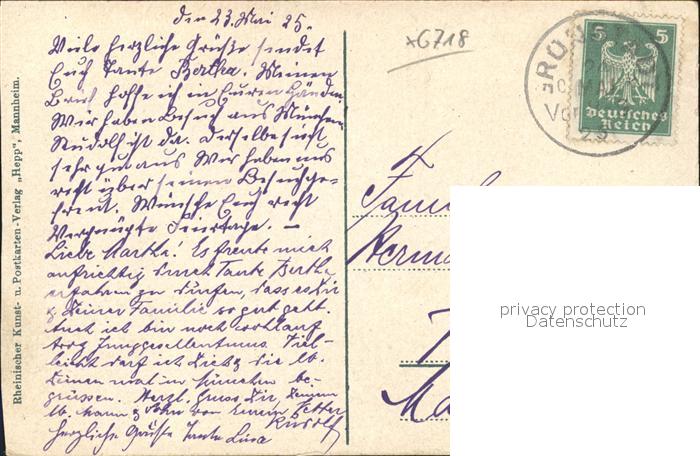 den 23. Mai 25.
Viele herzliche Grüße sendet
Euch Tante Bertha. Meinen
Brief hoffe ich in Euren Händen
Wir haben Besuch aus München
Rudolf ist da. Derselbe sieht
sehr gut aus Wir haben uns
recht über seinen Besuch ge-
freut. Wünsche Euch recht
Vergnügte Feiertage. —
Liebe Martha! Es freute mich
aufrichtig durch Tante Bertha
erfahren zu dürfen, dass es Dir
& Deiner Familie so gut geht.
Auch ich bin noch wohlauf
trotz Junggesellentums Viel-
leicht darf ich Dich & die lb.
Deinen mal in München be-
grüssen. Herzl. Gruss Dir, Deinem
lb. Mann & Sohn von Deinem Vetter
Rudolf
Herzliche Grüße Tante Lisa
Rheinischer Kunst- u. Postkarten-Verlag „Hepp", Mannheim.
*G718
5 5
Deutsches
Reich
Famil
Herm
Ma
privacy protection
Datenschutz